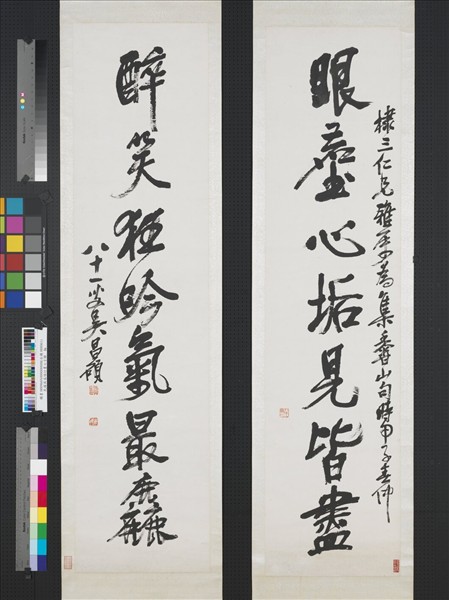 棣三仁兄雅屬為集香山句時甲子春仲
眼塵心垢見皆盡
醉笑狂吟氣最麤
八十一叟吳昌碩